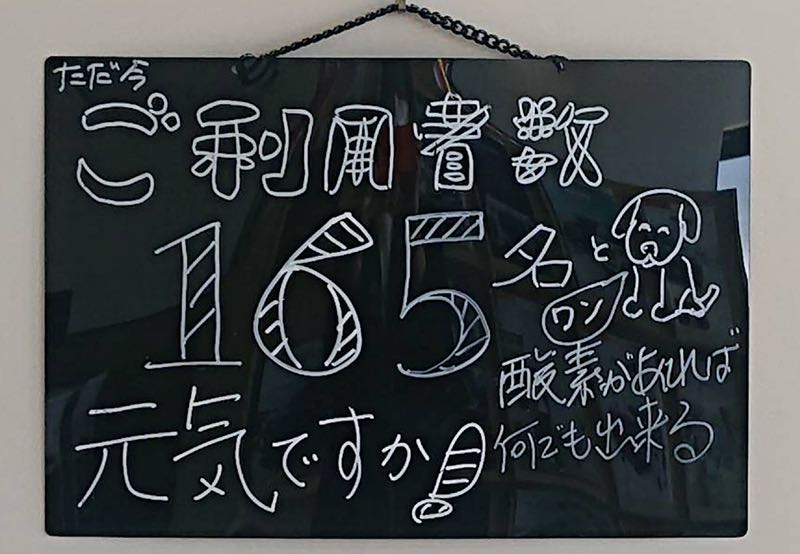 ただ今
ご利用者数
165名と
ワン
酸素があれば
何でも出来る
元気ですか!